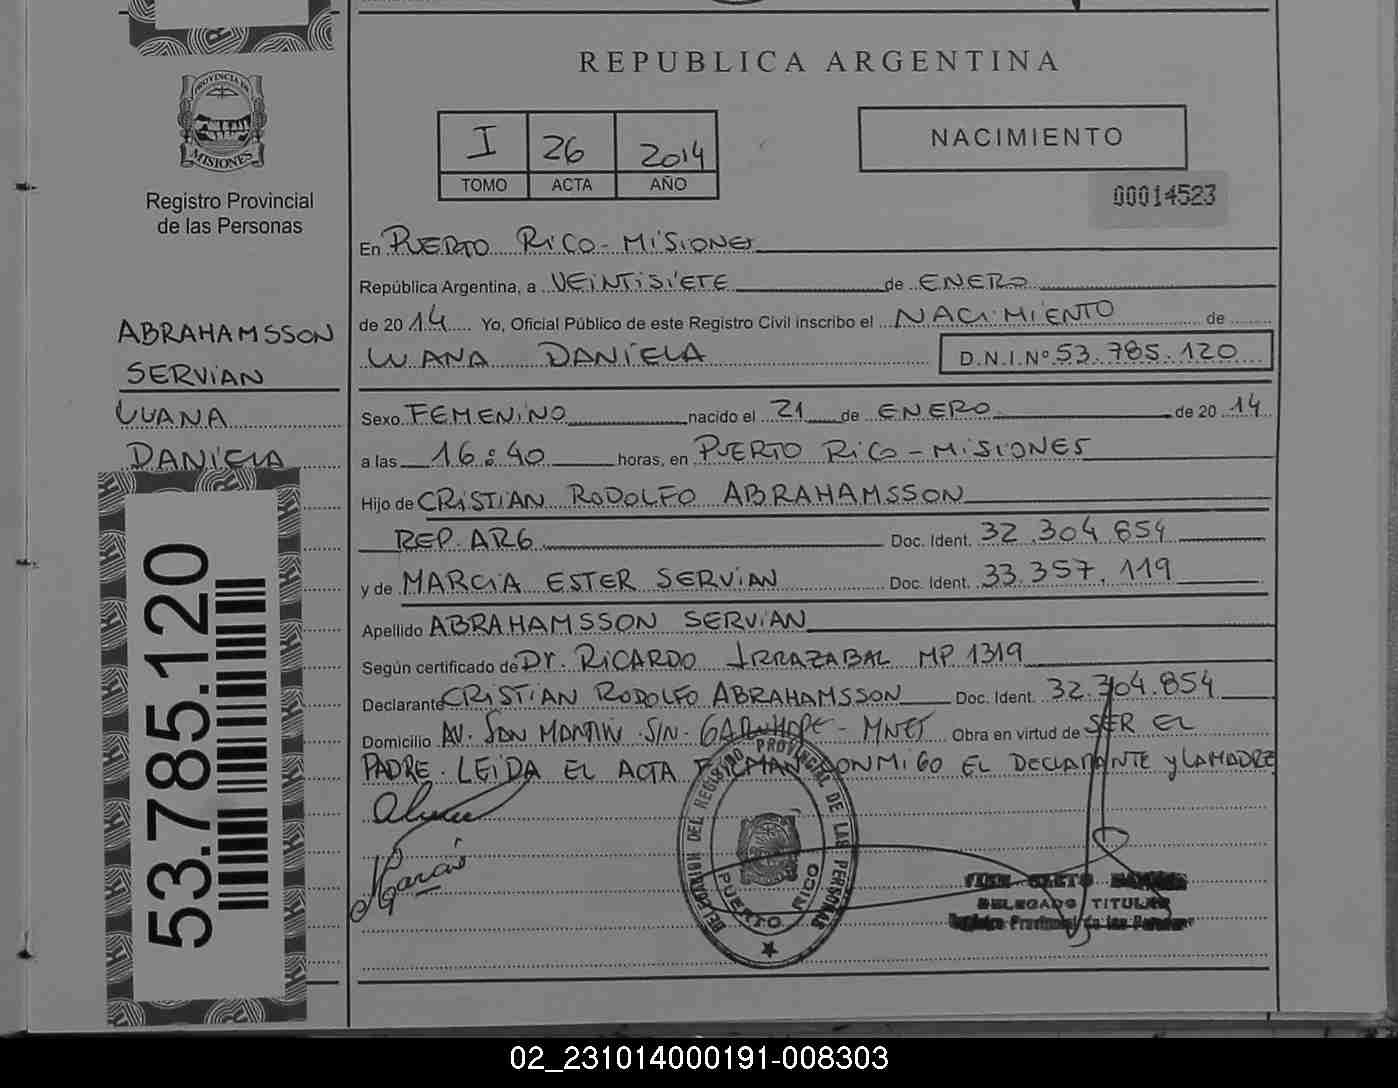 REPUBLICA ARGENTINA
PROVINCIA DE
MISIONES
Registro Provincial
de las Personas
I 26 2014
TOMO ACTA AÑO
NACIMIENTO
00014523
En PUERTO RICO - MISIONES
República Argentina, a VEINTISIETE de ENERO
de 2014 Yo, Oficial Público de este Registro Civil inscribo el NACIMIENTO de
LUANA DANIELA D.N.I.Nº 53.785.120
ABRAHAMSSON
SERVIAN
LUANA
DANIELA
Sexo FEMENINO nacido el 21 de ENERO de 2014
a las 16:40 horas, en PUERTO RICO - MISIONES
Hijo de CRISTIAN RODOLFO ABRAHAMSSON
REP. ARG Doc. Ident. 32.304.854
y de MARCIA ESTER SERVIAN Doc. Ident. 33.357.119
Apellido ABRAHAMSSON SERVIAN
Según certificado de Dr. RICARDO IRRAZABAL MP 1319
Declarante CRISTIAN RODOLFO ABRAHAMSSON Doc. Ident. 32.304.854
Domicilio AV. SAN MARTIN S/N - GARUHAPE - MNES Obra en virtud de SER EL
PADRE. LEIDA EL ACTA FIRMAN CONMIGO EL DECLARANTE y LA MADRE
53.785.120
DELEGACION DEL REGISTRO PROVINCIAL DE LAS PERSONAS
PUERTO RICO
DELEGADO TITULAR
Registro Provincial de las Personas
02_231014000191-008303